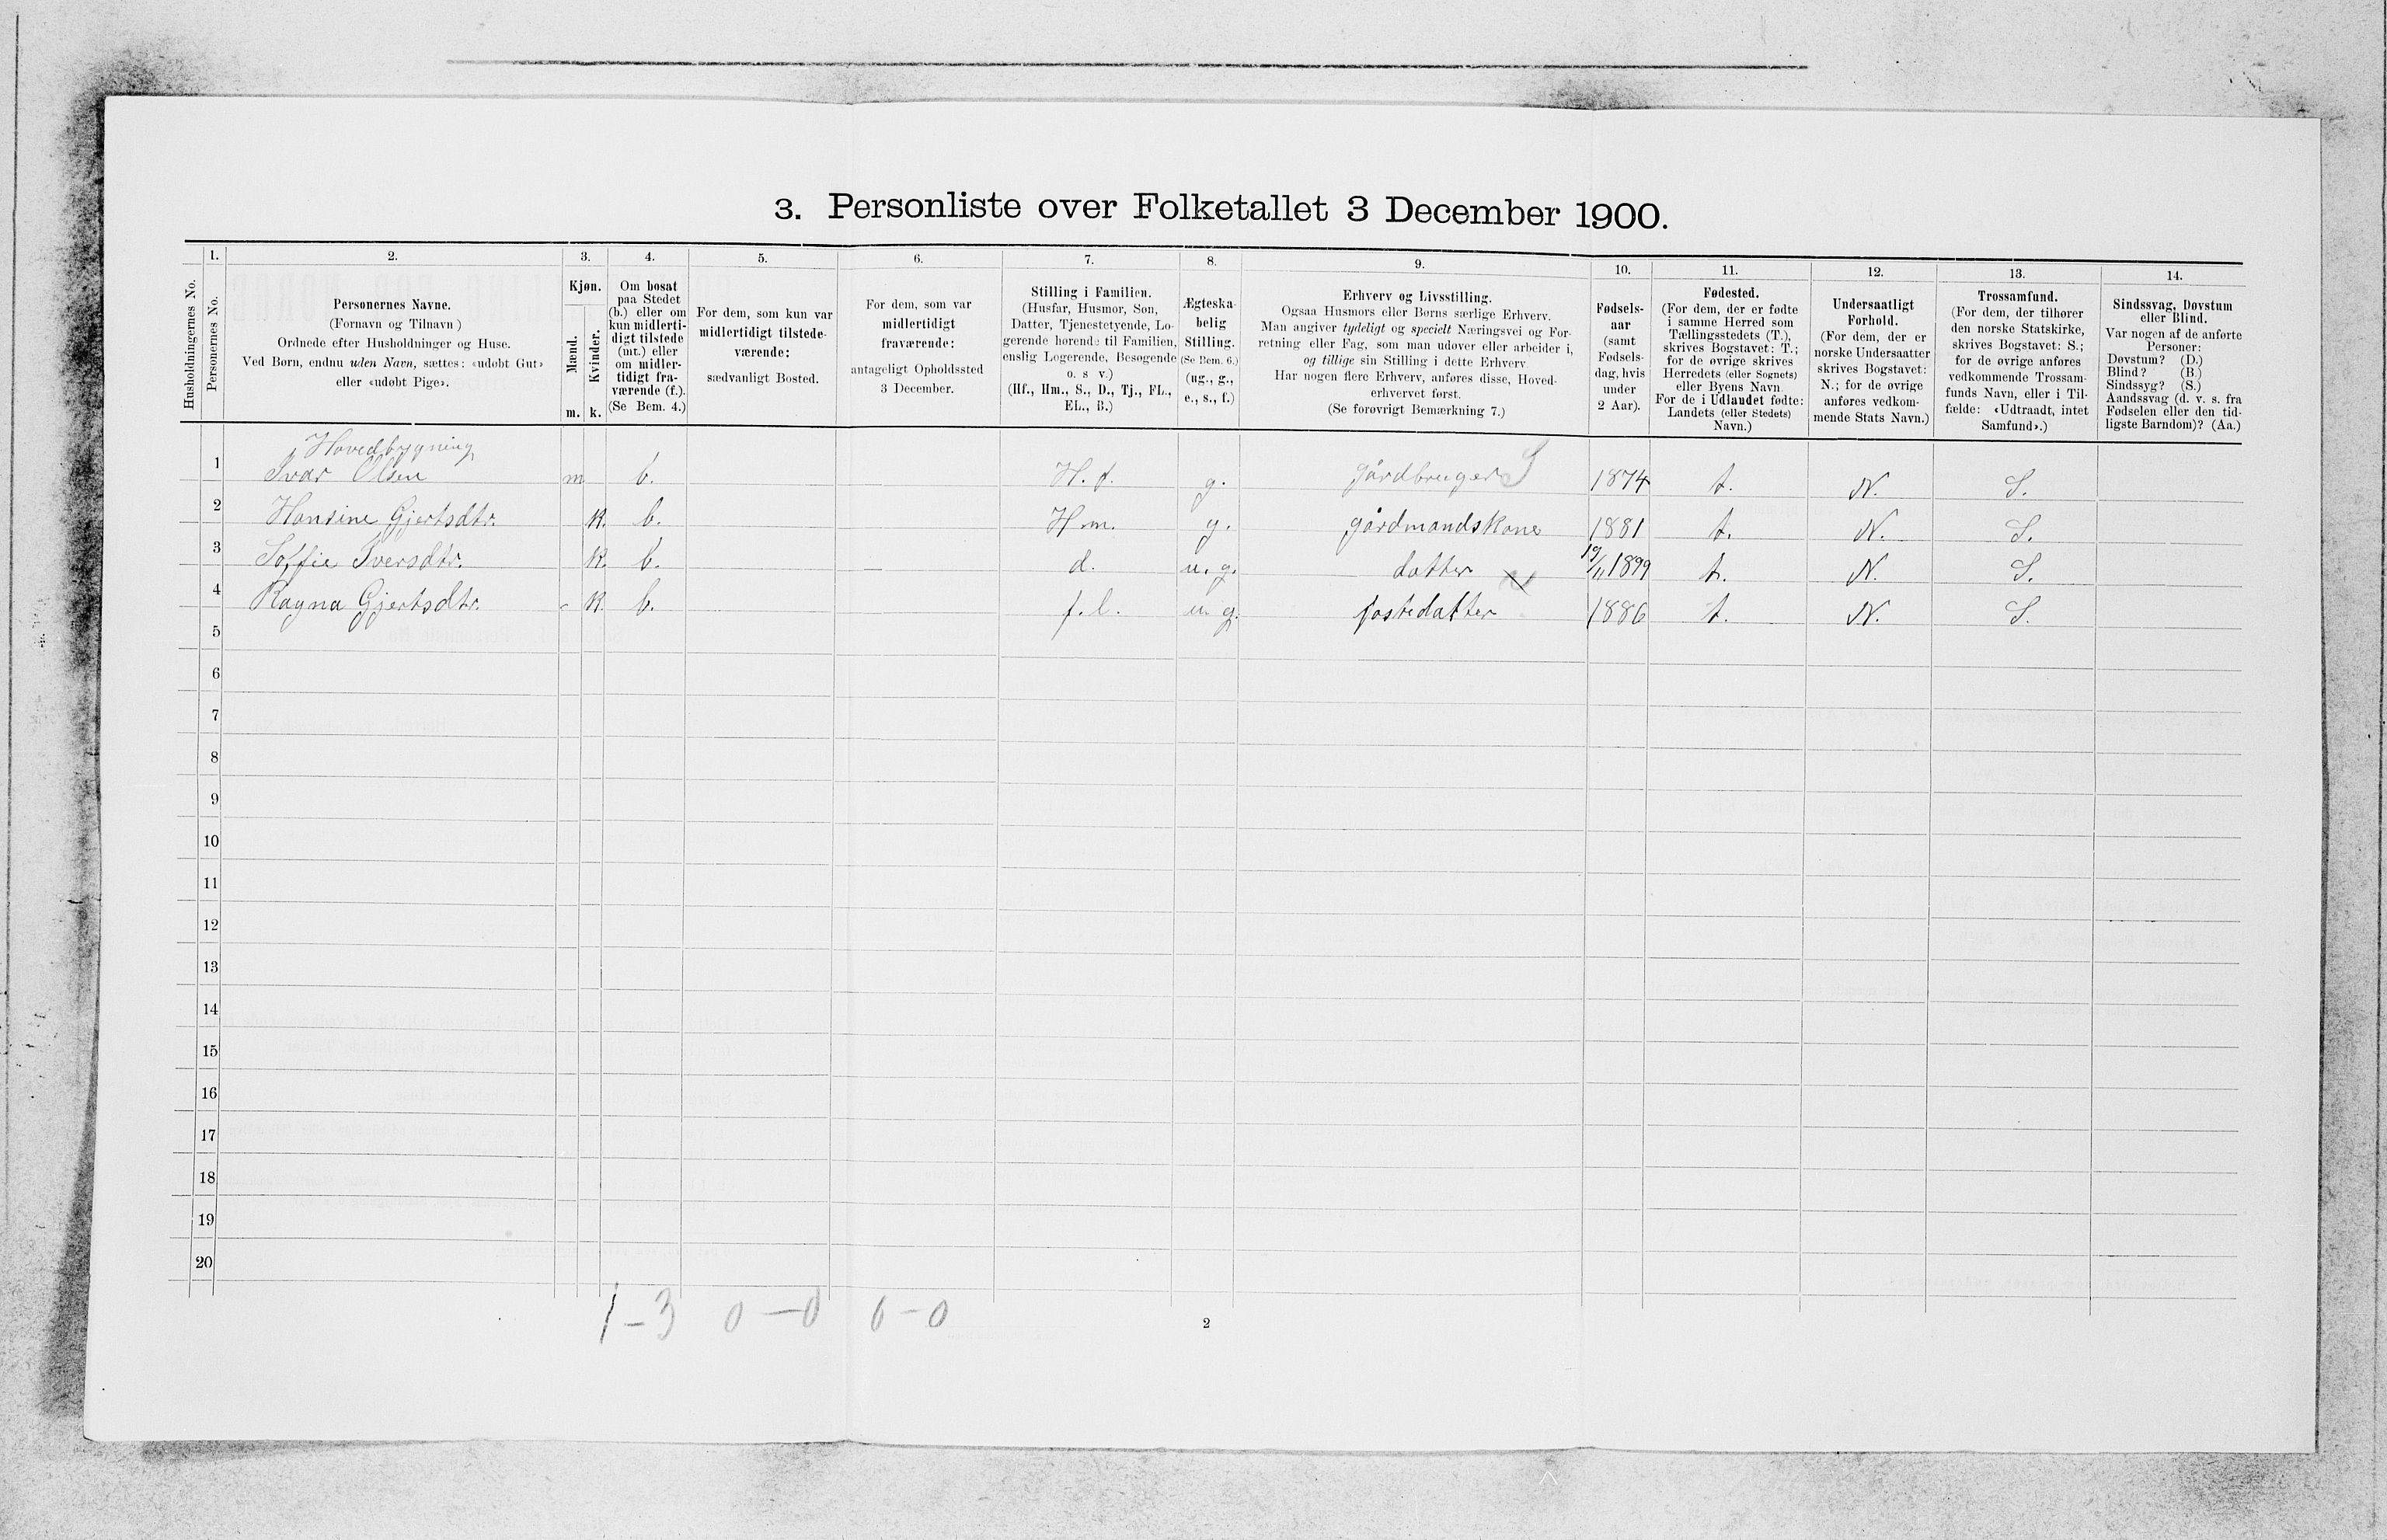 3. Personliste over Folketallet 3 December 1900.
1. 2. 3. 4. 5. 6. 7. 8. 9. 10. 11. 12. 13. 14.
Husholdningernes No.
Personernes No.
Personernes Navne.
(Fornavn og Tilnavn )
Ordnede efter Husholdninger og Huse.
Ved Børn, endnu uden Navn, sættes: «udøbt Gut»
eller «udøbt Pige».
Kjøn.
Mænd.
Kvinder.
m. k.
Om bosat
paa Stedet
(b.) eller om
kun midlerti-
digt tilstede
(mt.) eller
om midler-
tidigt fra-
værende (f.).
(Se Bem. 4.)
For dem, som kun var
midlertidigt tilstede-
værende:
sædvanligt Bosted.
For dem, som var
midlertidigt
fraværende:
antageligt Opholdssted
3 December.
Stilling i Familien.
(Husfar, Husmor, Søn,
Datter, Tjenestetyende, Lo-
gerende hørende til Familien,
enslig Logerende, Besøgende
o. s v.)
(Hf., Hm., S., D., Tj., FL.,
EL., B.)
Ægteska-
belig
Stilling.
(Se Bem. 6.)
(ug., g.,
e., s., f.)
Erhverv og Livsstilling.
Ogsaa Husmors eller Børns særlige Erhverv.
Man angiver tydeligt og specielt Næringsvei og For-
retning eller Fag, som man udøver eller arbeider i,
og tillige sin Stilling i dette Erhverv.
Har nogen flere Erhverv, anføres disse, Hoved-
erhvervet først.
(Se forøvrigt Bemærkning 7.)
Fødsels-
aar
(samt
Fødsels-
dag, hvis
under
2 Aar).
Fødested.
(For dem, der er fødte
i samme Herred som
Tællingsstedets (T.),
skrives Bogstavet: T.;
for de øvrige skrives
Herredets (eller Sognets)
eller Byens Navn.
For de i Udlandet fødte:
Landets (eller Stedets)
Navn.)
Undersaatligt
Forhold.
(For dem, der er
norske Undersaatter
skrives Bogstavet:
N.; for de øvrige
anføres vedkom-
mende Stats Navn.)
Trossamfund.
(For dem, der tilhører
den norske Statskirke,
skrives Bogstavet: S.;
for de øvrige anføres
vedkommende Trossam-
funds Navn, eller i Til-
fælde: «Udtraadt, intet
Samfund».)
Sindssvag, Døvstum
eller Blind.
Var nogen af de anførte
Personer:
Døvstum? (D.)
Blind? (B.)
Sindssyg? (S.)
Aandssvag (d. v. s. fra
Fødselen eller den tid-
ligste Barndom)? (Aa.)
Hovedbygning
1 Ivar Olsen m b. H. f. g. gårdbruger S 1874 t. N. S.
2 Hansine Gjertsdtr. k. b. H m. g. gårdmandskone 1881 t. N. S.
3 Soffie Iversdtr. k. b. — d. u. g. datter 19/11 1899 t. N. S.
4 Ragna Gjertsdtr. k. b. f. l. u g. fostedatter 1886 t. N. S.
5
6
7
8
9
10
11
12
13
14
15
16
17
18
19
20
1–3 0–0 0–0
2